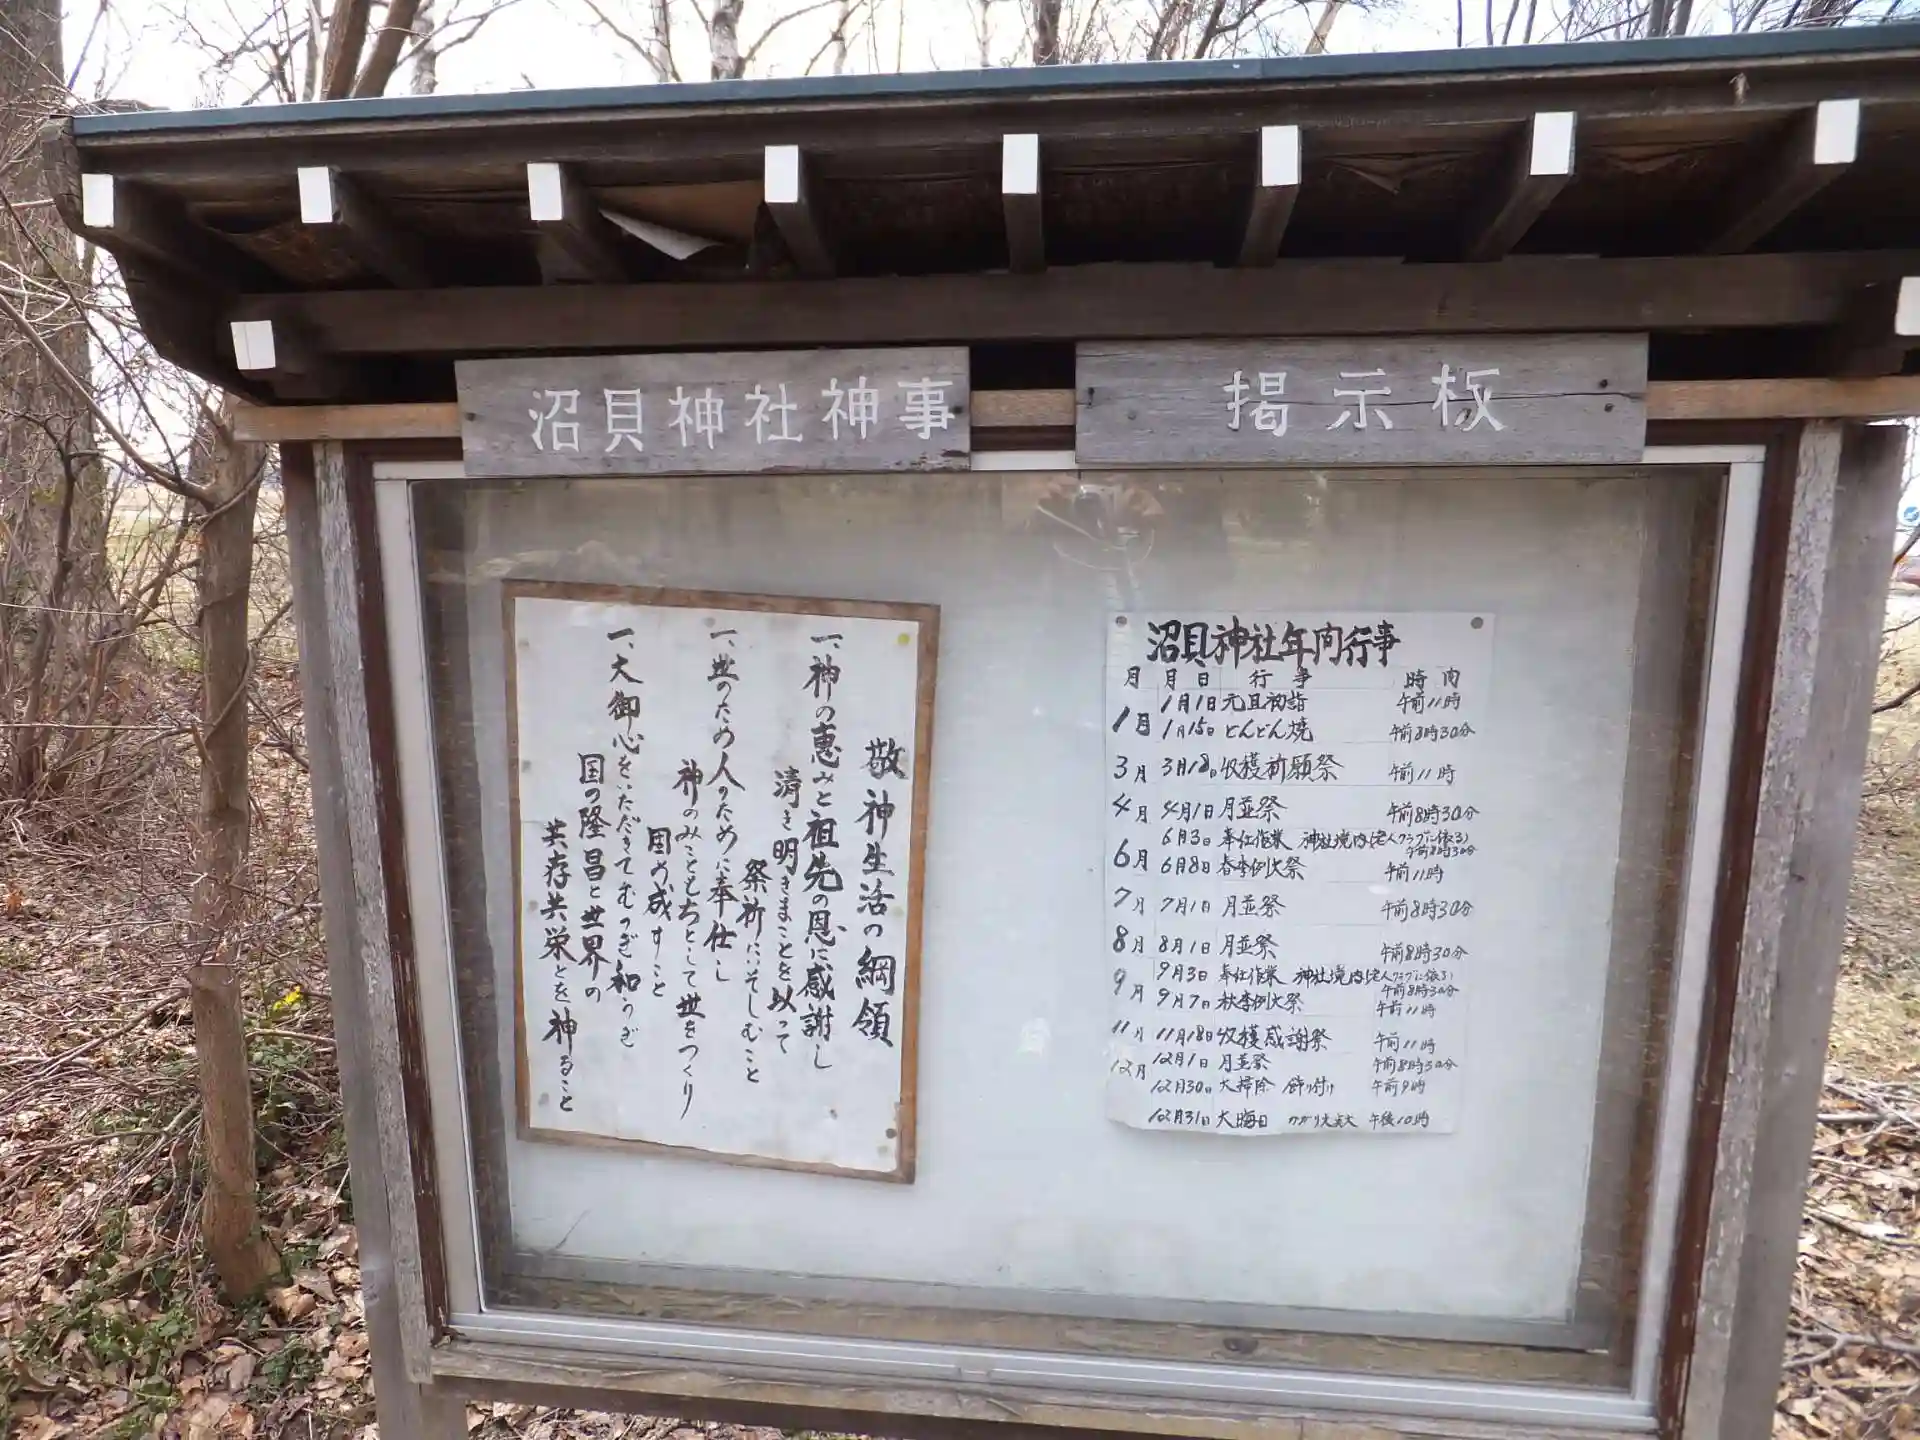 沼貝神社神事
掲示板
敬神生活の綱領
一、神の恵みと祖先の恩に感謝し
清き明きまことを以って
祭祈にいそしむこと
一、世のため人のために奉仕し
神のみこともちとして世をつくり
固め成すこと
一、大御心をいただきてむつぎ和らぎ
国の隆昌と世界の
共存共栄とを神ること
沼貝神社年間行事
月 月日 行事 時内
1月 1月1日 元旦初詣 午前11時
1月15日 どんどん焼 午前8時30分
3月 3月18日 収穫祈願祭 午前11時
4月 4月1日 月並祭 午前8時30分
6月 6月3日 奉仕作業 神社境内(老人クラブに依る) 午前8時30分
6月8日 春季例大祭 午前11時
7月 7月1日 月並祭 午前8時30分
8月 8月1日 月並祭 午前8時30分
9月 9月3日 奉仕作業 神社境内(老人クラブに依る) 午前8時30分
9月7日 秋季例大祭 午前11時
11月 11月18日 収穫感謝祭 午前11時
12月 12月1日 月並祭 午前8時30分
12月30日 大掃除 飾り付け 午前9時
12月31日 大晦日 かがり火点火 午後10時